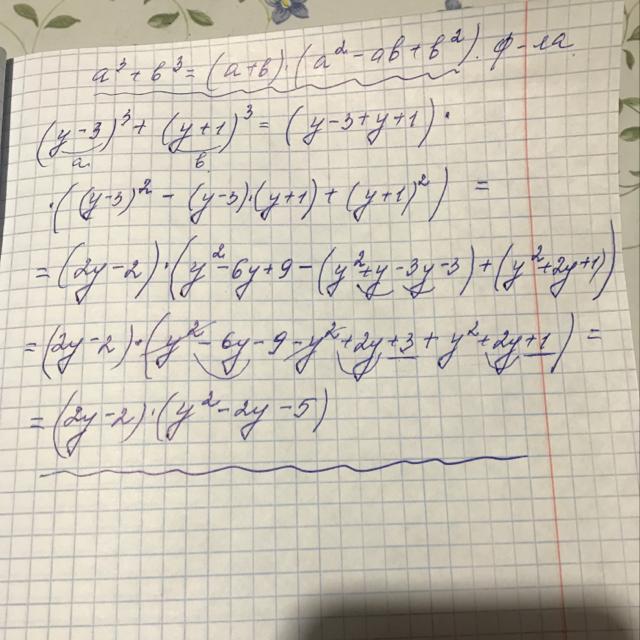 a³ + b³ = (a+b)·(a² - ab + b²). ф-ла.
(y-3)³ + (y+1)³ = (y-3+y+1)·
a b
·((y-3)² - (y-3)·(y+1) + (y+1)²) =
= (2y-2)·(y² - 6y + 9 - (y² + y - 3y - 3) + (y² + 2y + 1)
= (2y-2)·(y² - 6y - 9 - y² + 2y + 3 + y² + 2y + 1) =
= (2y-2)·(y² - 2y - 5)